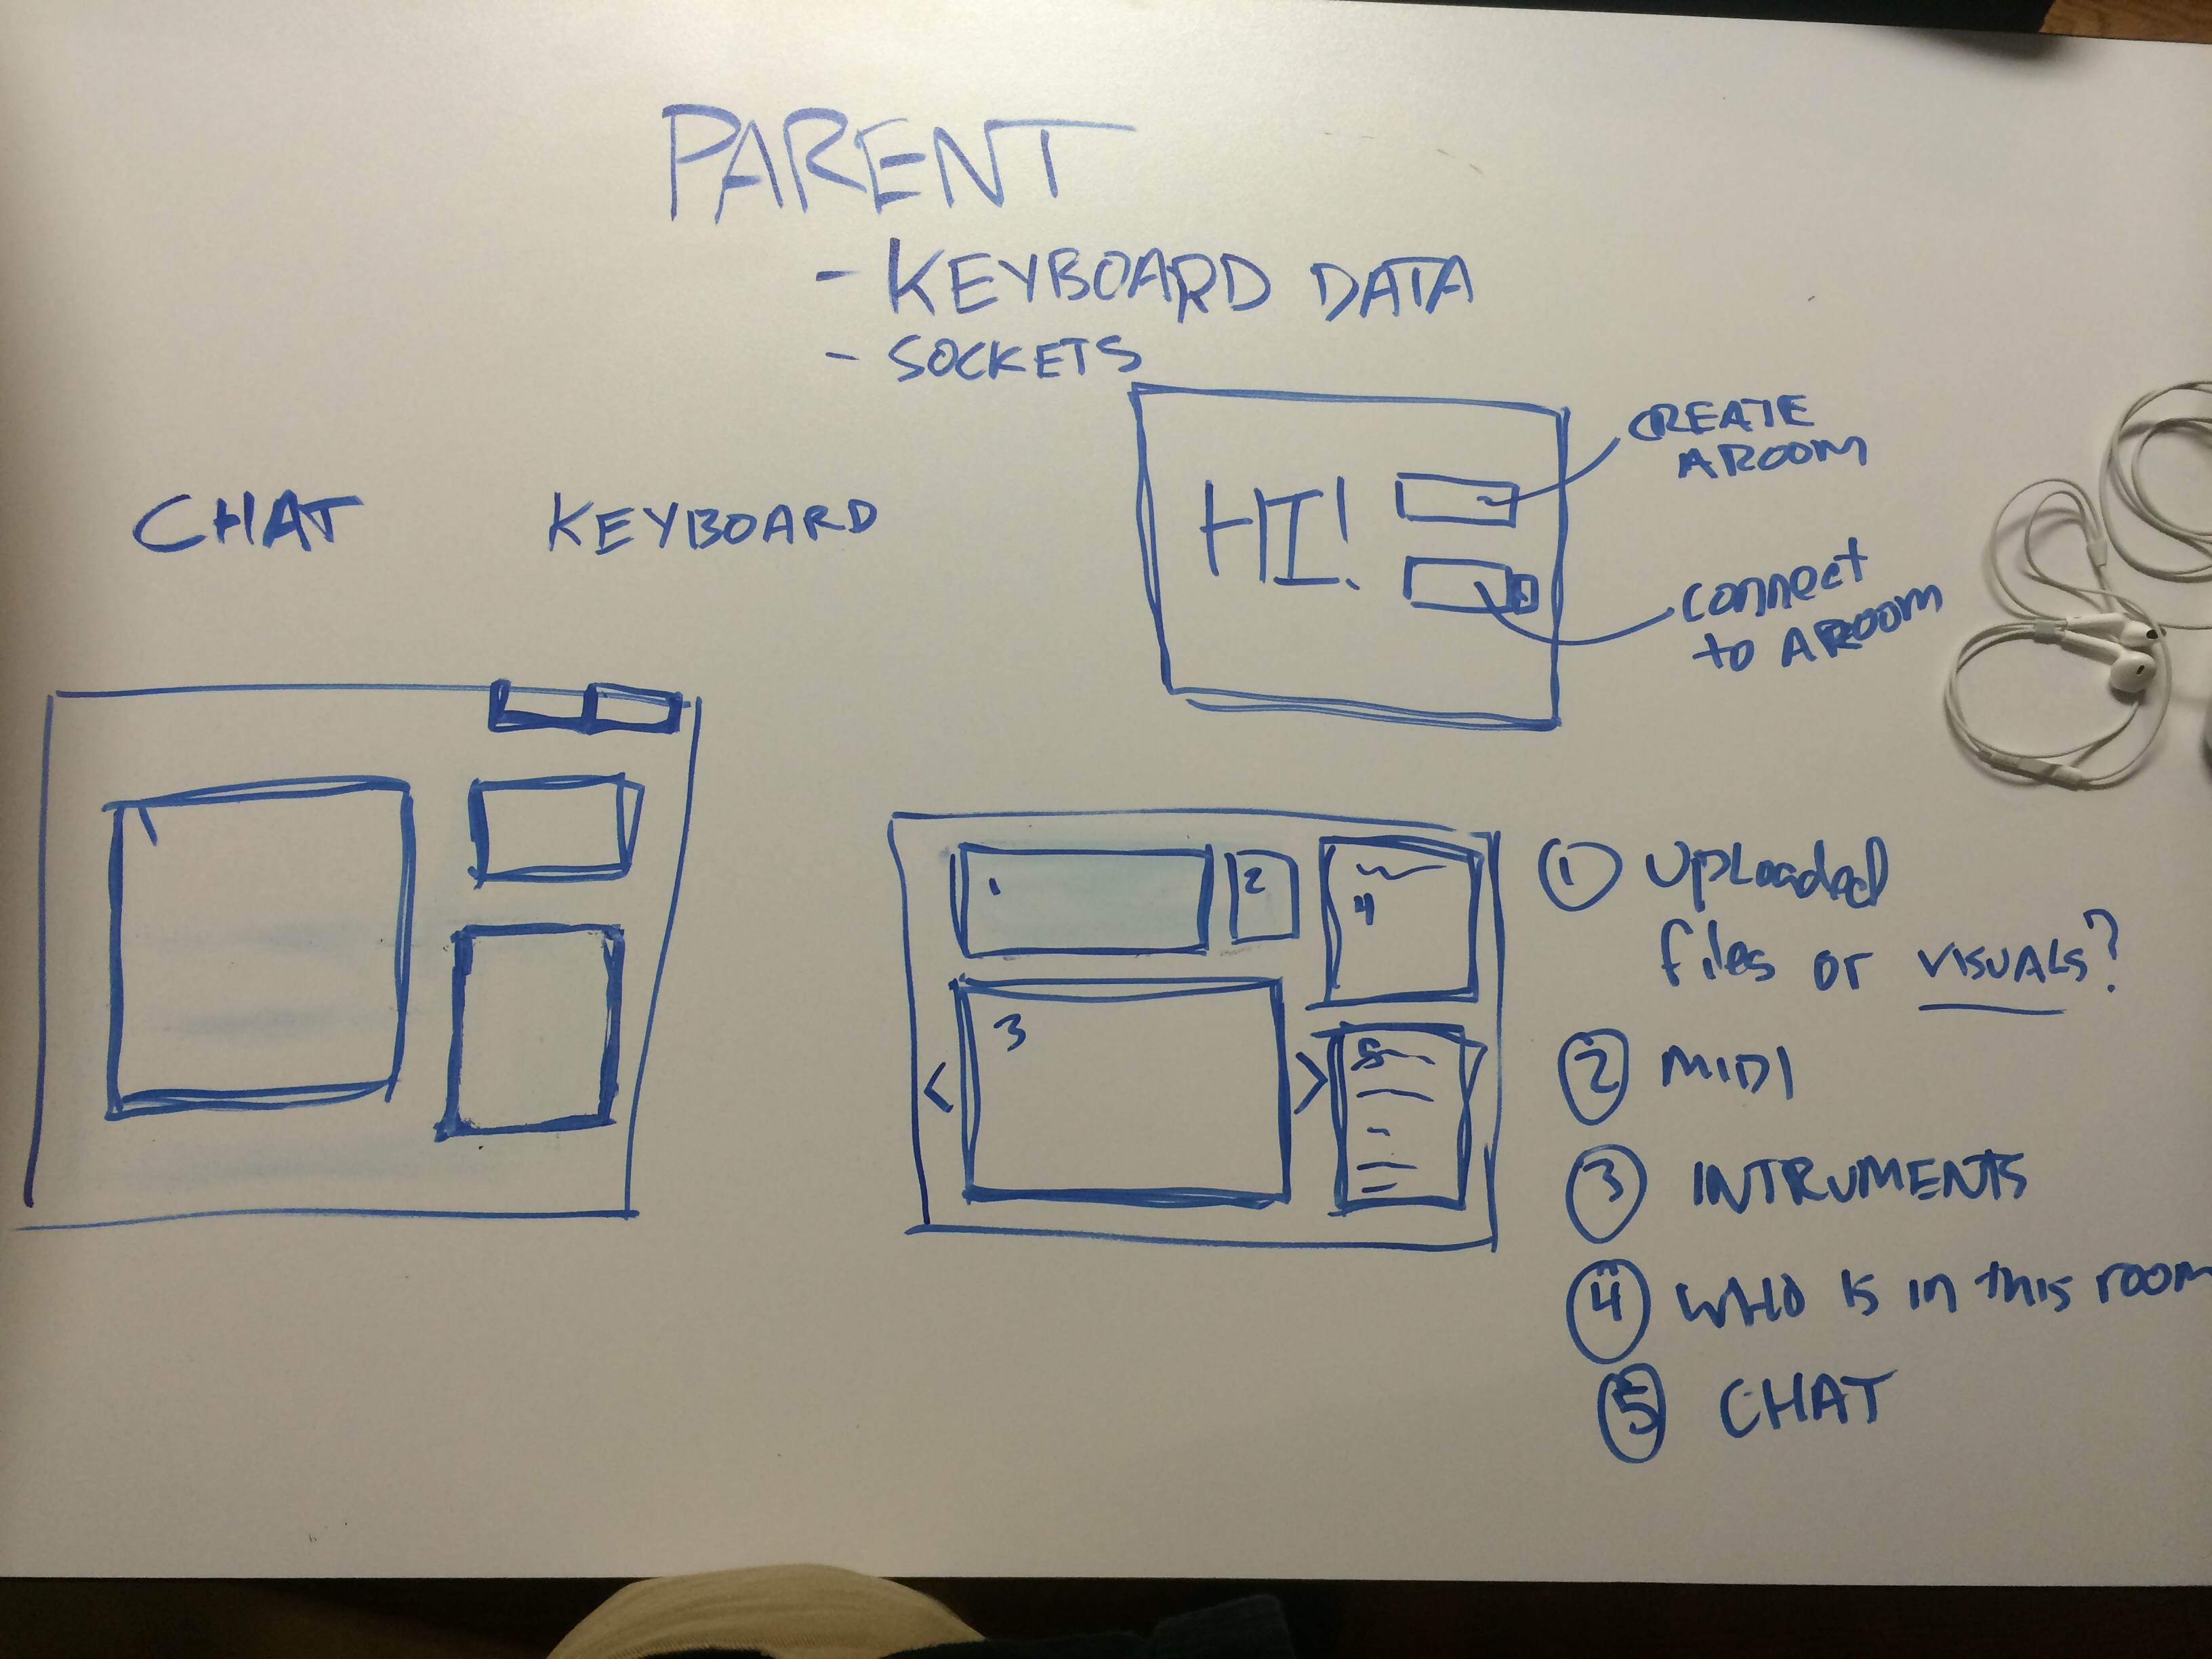 PARENT
- KEYBOARD DATA
- SOCKETS
CHAT KEYBOARD
HI!
CREATE
A ROOM
connect
to A ROOM
1
2
3
4
5
① Uploaded
files or visuals?
② MIDI
③ INTRUMENTS
④ WHO IS IN THIS ROOM
⑤ CHAT